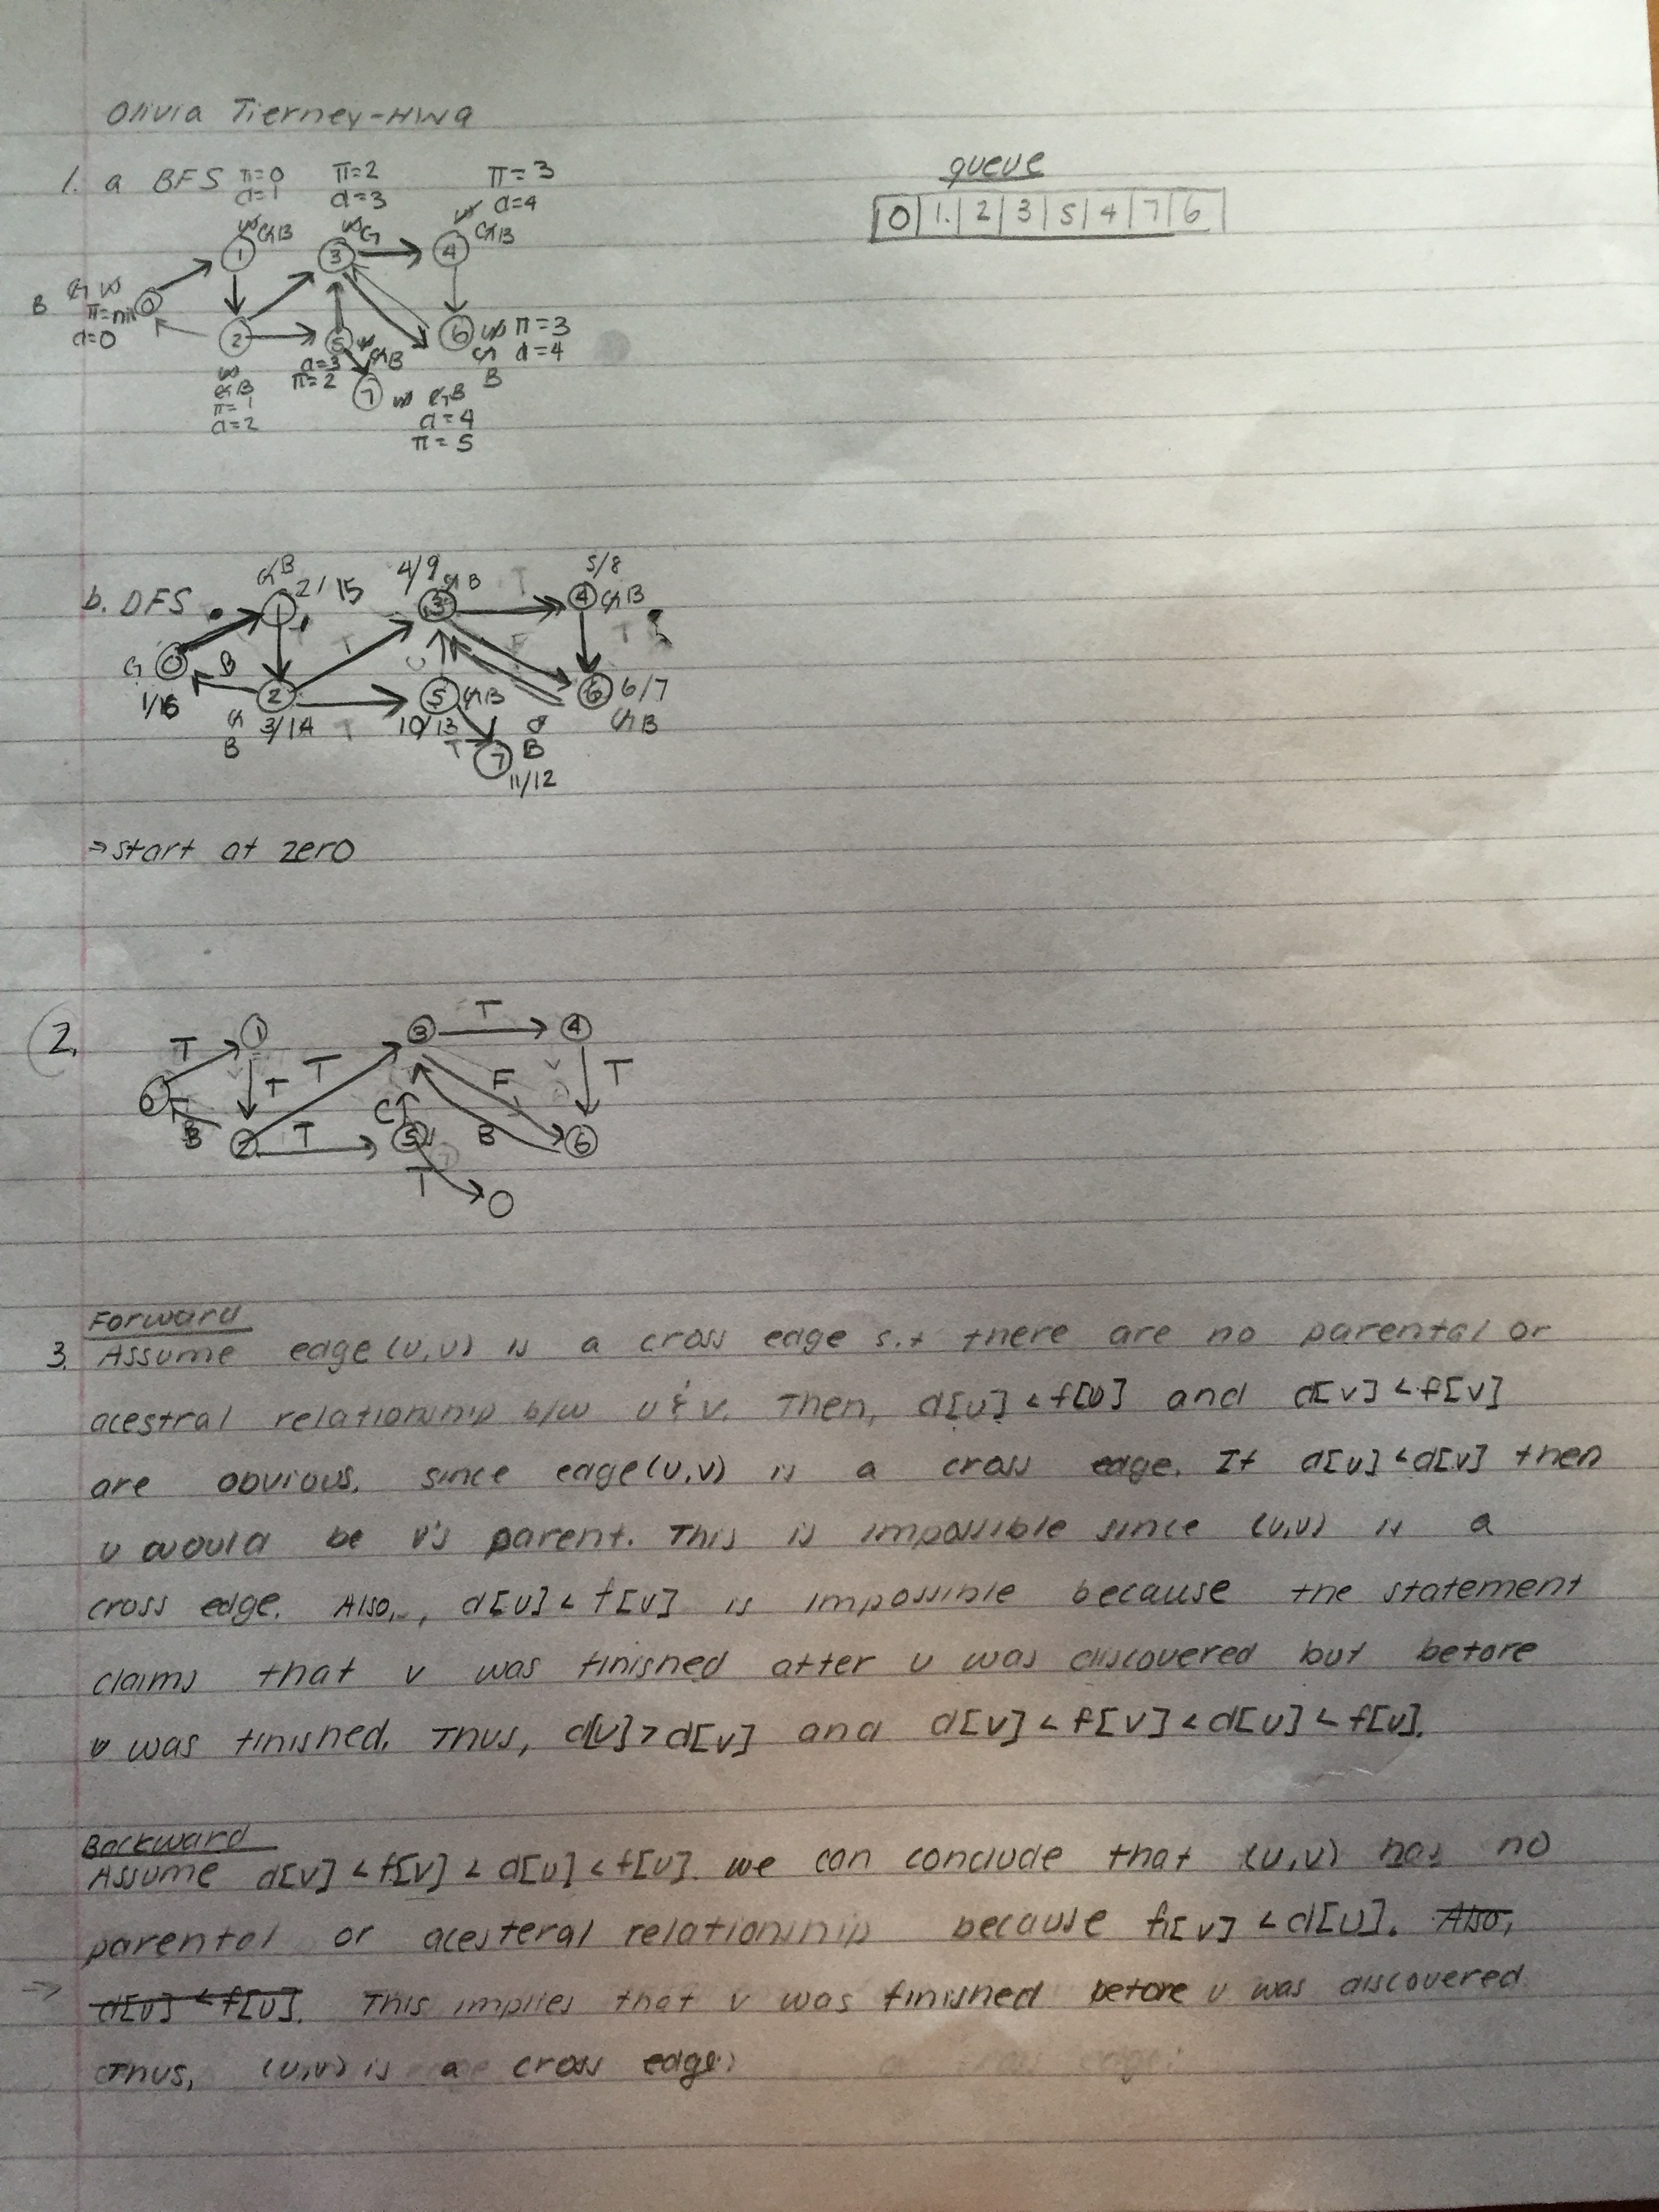 Olivia Tierney-HW9
queue
1. a BFS π=0 π=2 π=3
d=1 d=3 d=4
0 1. 2 3 5 4 7 6
W G B W G W G B
1 3 4
B G W
π=nil 0
d=0
2 5 W G B 6 W π=3
G d=4
B
d=3
π=2
W
G B
π=1
d=2
7 W G B
d=4
π=5
b. DFS
G B 2/15 4/9 G B T 5/8
1 3 4 G B
T T F T
G 0 B C
1/16
2 5 G B 6 6/7
G B
G 3/14 T 10/13
B
T 7 G
B
11/12
⇒ start at zero
2.
T 1 3 T 4
T T F T
0 C
B 2 T 5 B 6
T
Forward
3. Assume edge (u,v) is a cross edge s.t there are no parental or
acestral relationship b/w u & v. Then, d[u] < f[u] and d[v] < f[v]
are obvious, since edge(u,v) is a cross edge. If d[u] < d[v] then
u would be v's parent. This is impossible since (u,v) is a
cross edge. Also,, d[u] < f[v] is impossible because the statement
claims that v was finished after u was discovered but before
u was finished. Thus, d[u] > d[v] and d[v] < f[v] < d[u] < f[u].
Backward
Assume d[v] < f[v] < d[u] < f[u]. we can conclude that (u,v) has no
parental or acesteral relationship because f[v] < d[u]. Also,
→ d[u] < f[u]. This implies that v was finished before u was discovered
Thus, (u,v) is a cross edge.